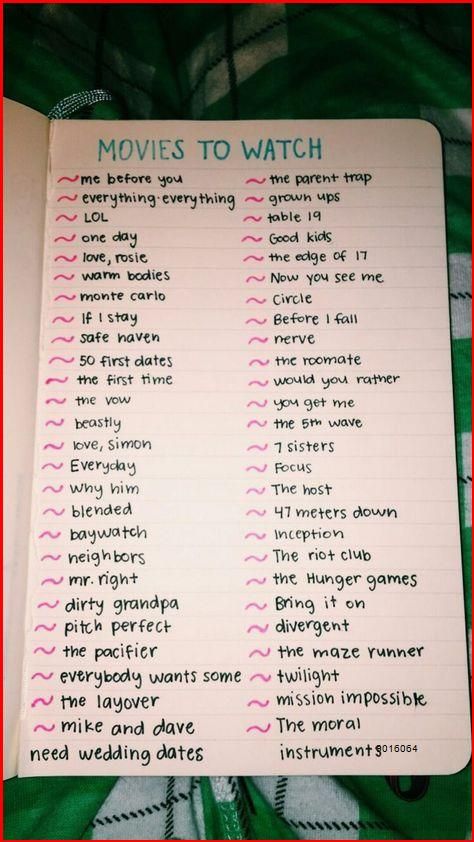 MOVIES TO WATCH
~me before you
~everything.everything
~LOL
~one day
~love, rosie
~warm bodies
~monte carlo
~If I stay
~safe haven
~50 first dates
~the first time
~the vow
~beastly
~love, simon
~Everyday
~why him
~blended
~baywatch
~neighbors
~mr. right
~dirty grandpa
~pitch perfect
~the pacifier
~everybody wants some
~the layover
~mike and dave
need wedding dates
~the parent trap
~grown ups
~table 19
~Good kids
~the edge of 17
~Now you see me
~Circle
~Before I fall
~nerve
~the roomate
~would you rather
~you get me
~the 5th wave
~7 sisters
~Focus
~The host
~47 meters down
~Inception
~The riot club
~the Hunger games
~Bring it on
~divergent
~the maze runner
~twilight
~mission impossible
~The moral
instruments
9016064